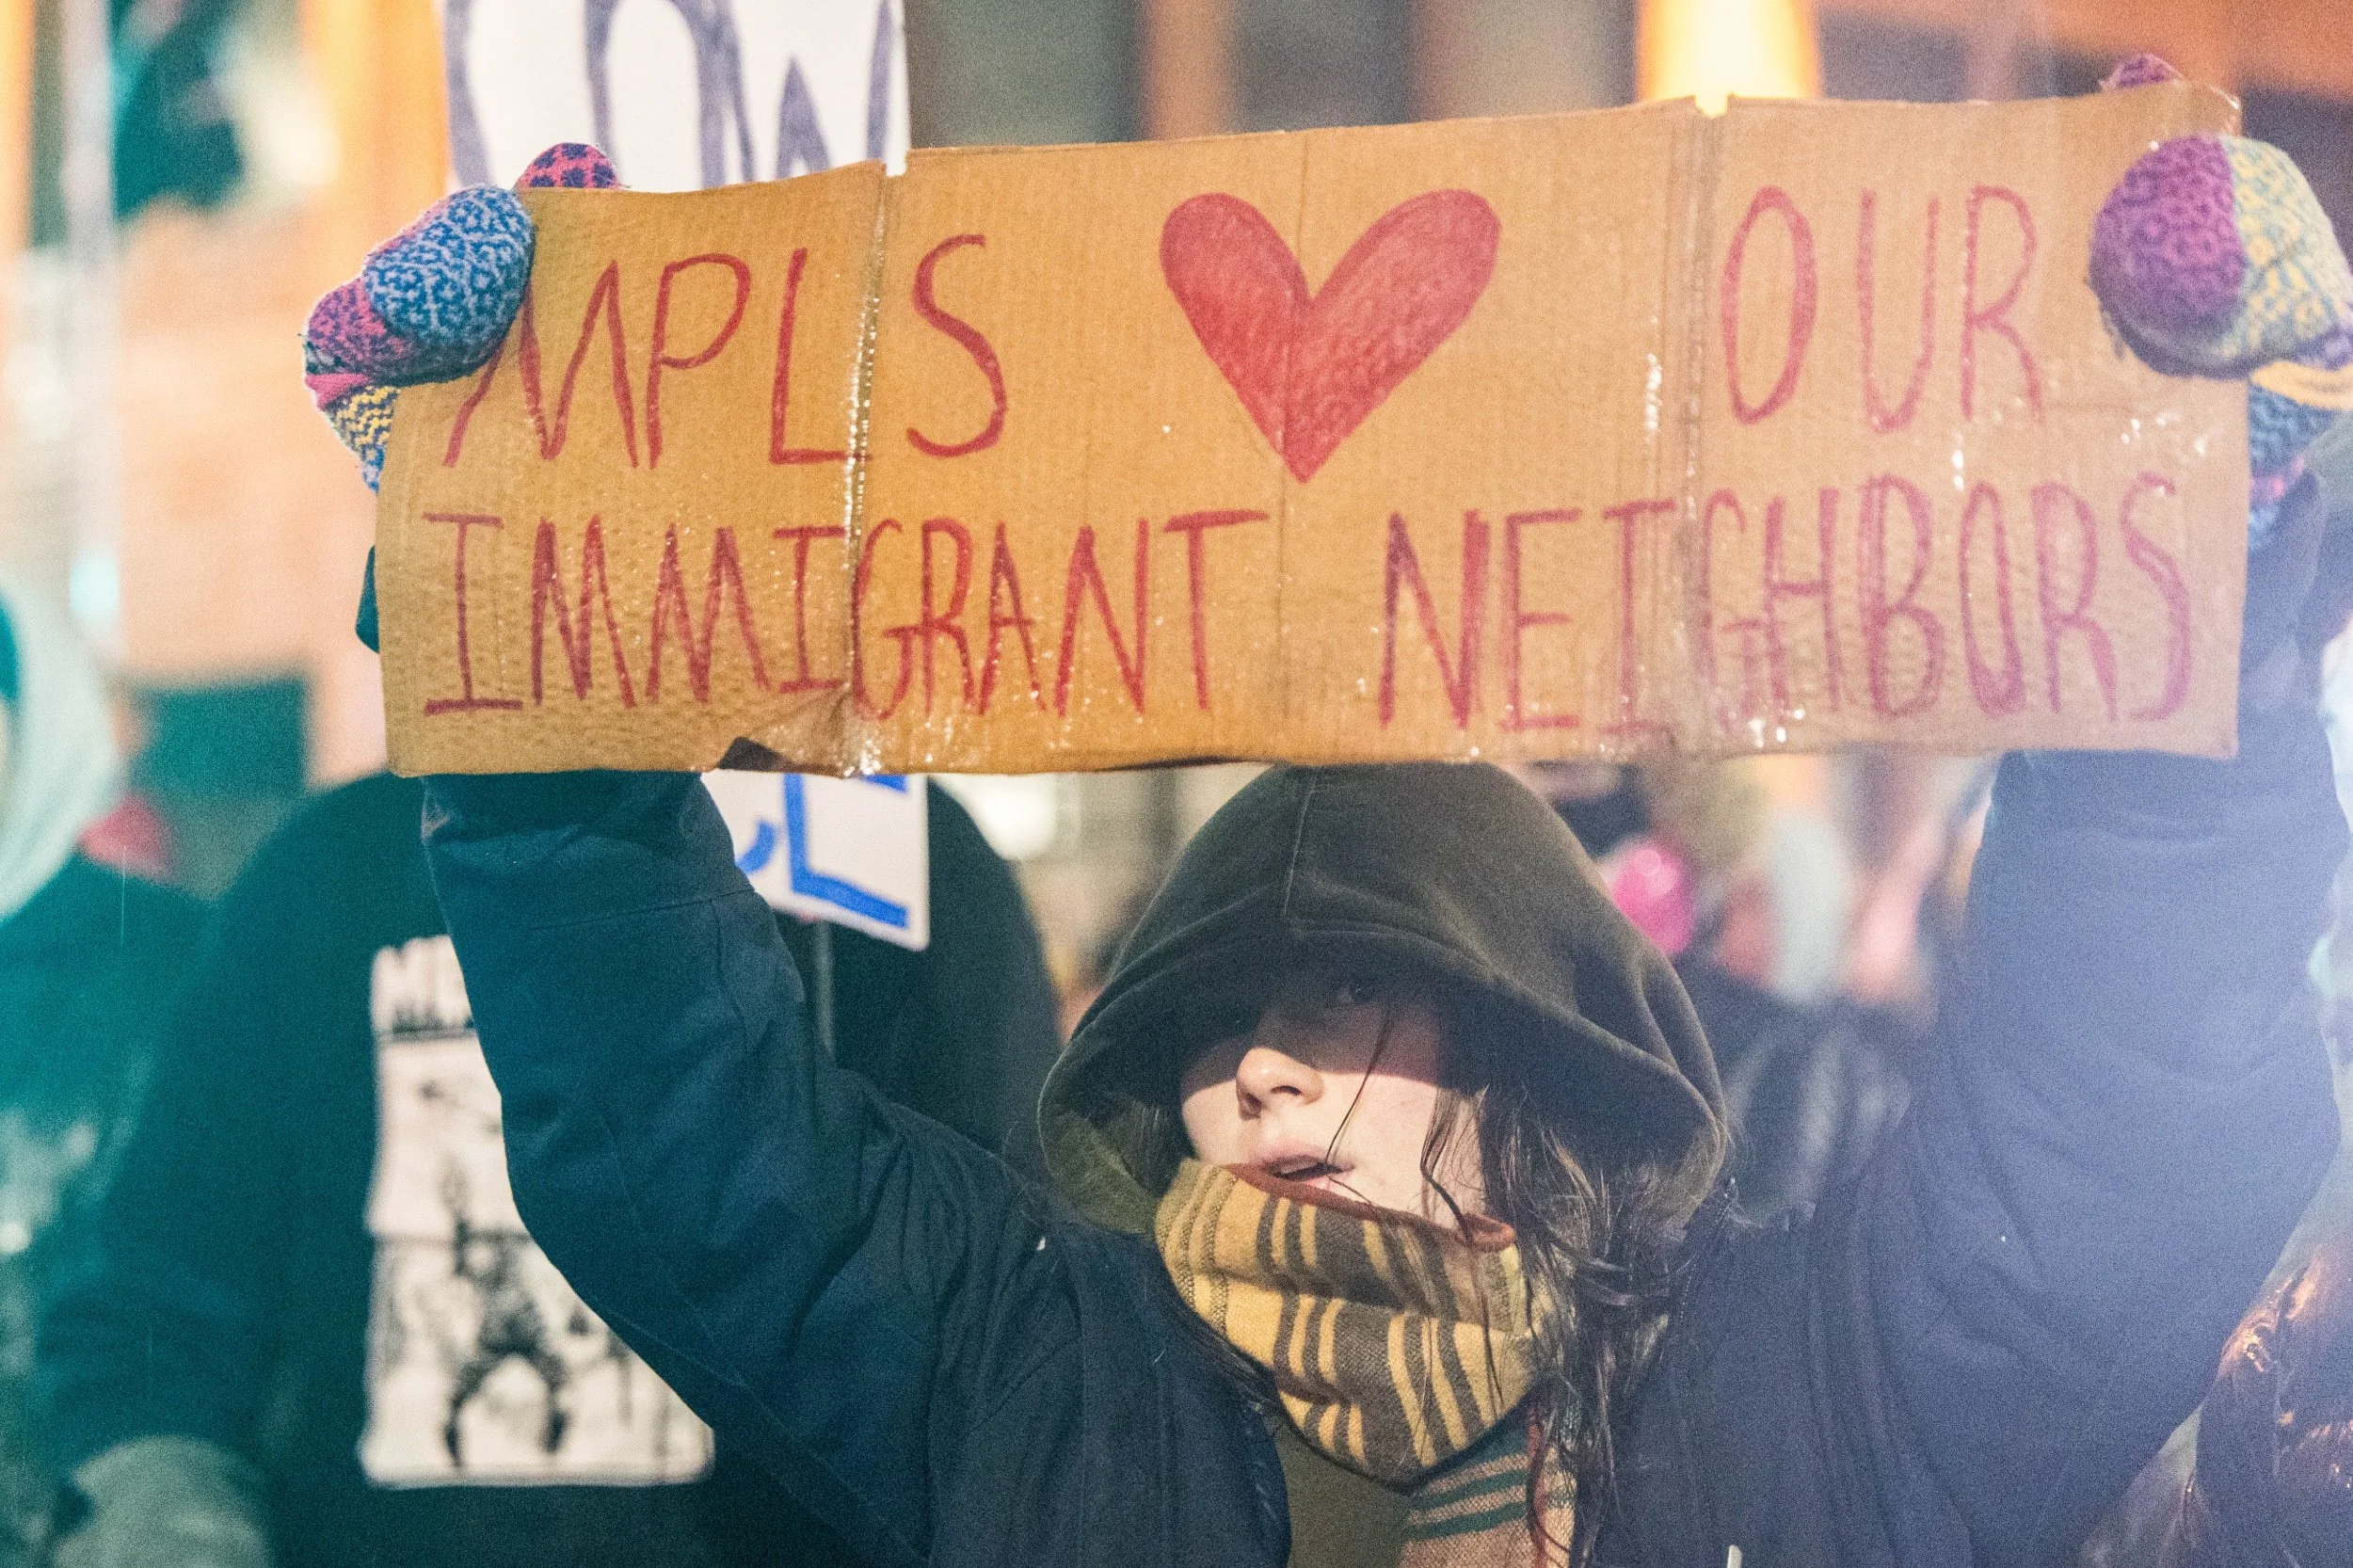 MPLS ♥ OUR
IMMIGRANT NEIGHBORS